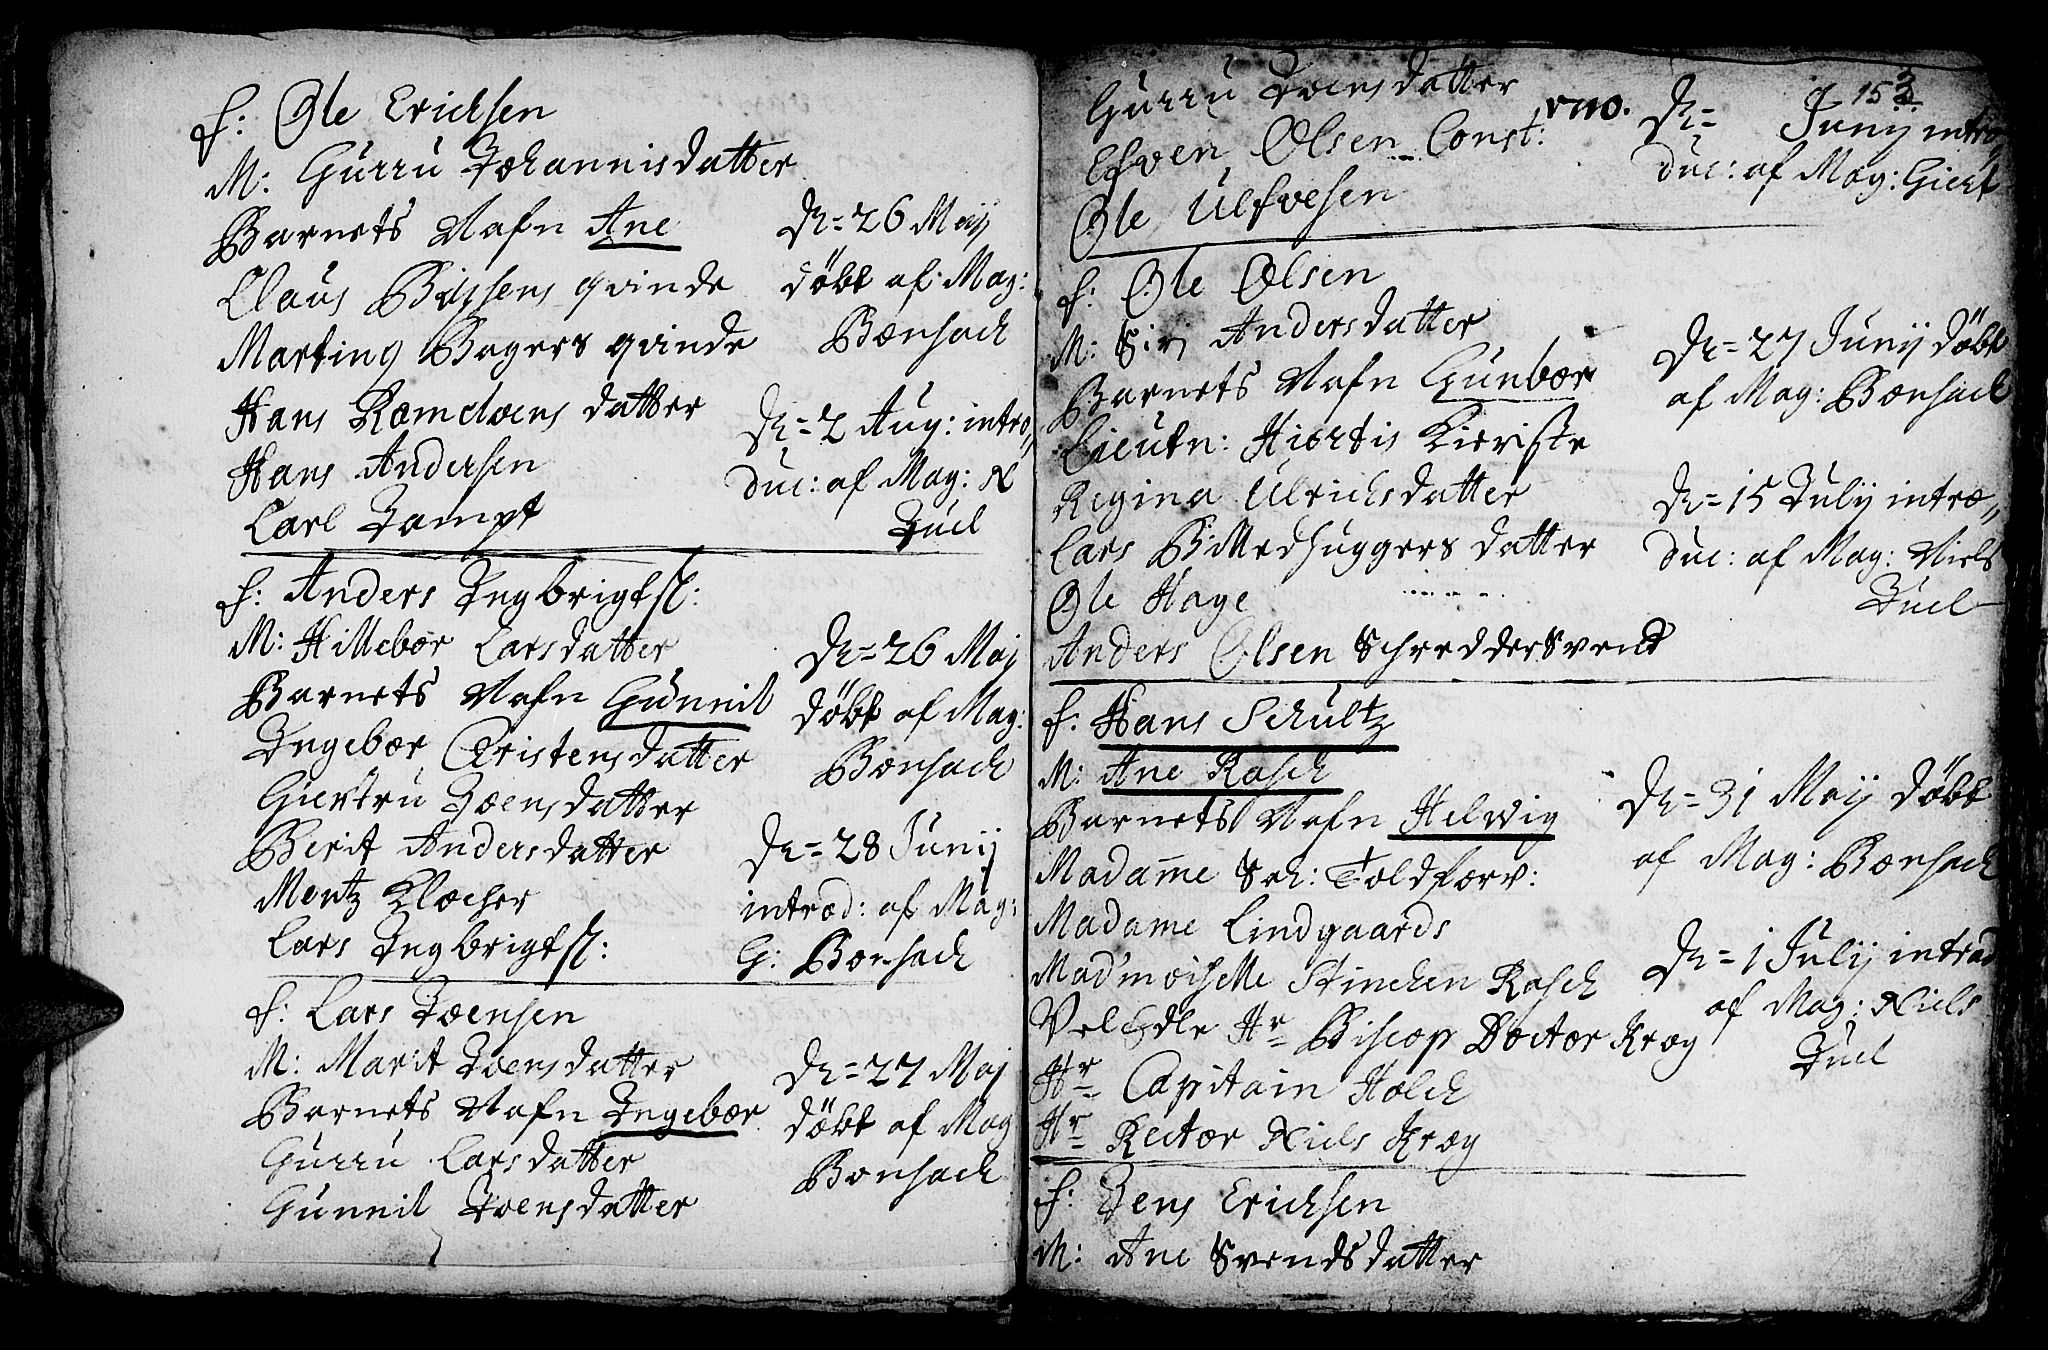 f: Ole Erichsen
M: Gurru Johannisdatter
Barnets Nafn Ane
Claus Büssens qvinde
Marting Bagers qvinde
Hans Romdoens datter
Hans Andersen
Carl Jampt
D= 26 Maij
döbt af: Mag:
Bonsach
D= 2 Aug: intro
duc: af Mag: N
Juel
f: Anders Ingbrigts:
M: Hillebor Larsdatter
Barnets Nafn Gunnil
Ingebor Cristensdatter
Giertru Joensdatter
Berit Andersdatter
Mentz Klocher
Lars Ingbrigts:
D= 26 Maj
döbt af Mag:
Bonsach
D= 28 Junij
introd: af Mag:
G: Bonsach
f: Lars Joensen
M: Marit Joensdatter
Barnets Nafn Ingebor
Gurru Larsdatter
Gunnil Joensdatter
D= 27 Maj
döbt af Mag
Bonsach
153.
Gurru Joensdatter
Esven Olsen Const:
Ole Ulfvesen
1710.
D= Junij intro
duc: af Mag: Giert
f: Ole Olsen
M: Siri Andersdatter
Barnets Nafn Gunbor
Lieutn: Hiortis Kieriste
Regina Ulrichsdatter
Lars Billedhuggers datter
Ole Hage
Anders Olsen Schreddersvend
D= 27 Junij döbt
af Mag: Bonsach
D= 15 Julij intro
duc: af Mag: Niels
Juel
f: Hans Schultz
M: Ane Rasch
Barnets Nafn Helwig
Madame Sal: Toldforv:
Madame Lindgaards
Mad'moiselle Stinchen Rasch
VelEdle Hr Biscop Doctor Krog
Hr Capitain Holck
Hr Rector Niels Krog
D= 31 Maij döbt
af Mag: Bonsach
D= 1 Julij introd
af Mag: Niels
Juel
f: Jens Erichsen
M: Ane Svendsdatter